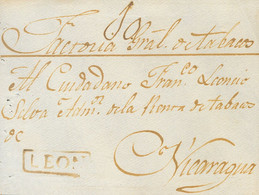 Factoria Gral. de tabacos
Al Ciudadano Fran.co Leoncio
Silva Adm.r de la Renta de tabaco
de
LEON
Nicaragua